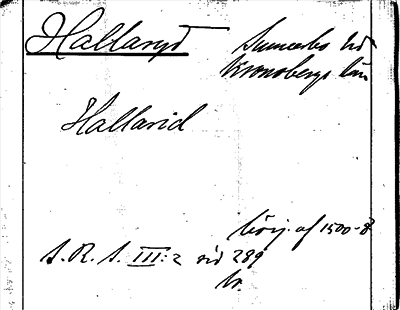 Hallaryd
Sunnerbo hd
Kronobergs län
Hallarid
börj. af 1500-t
S.R.S. III:2 sid 289
br.